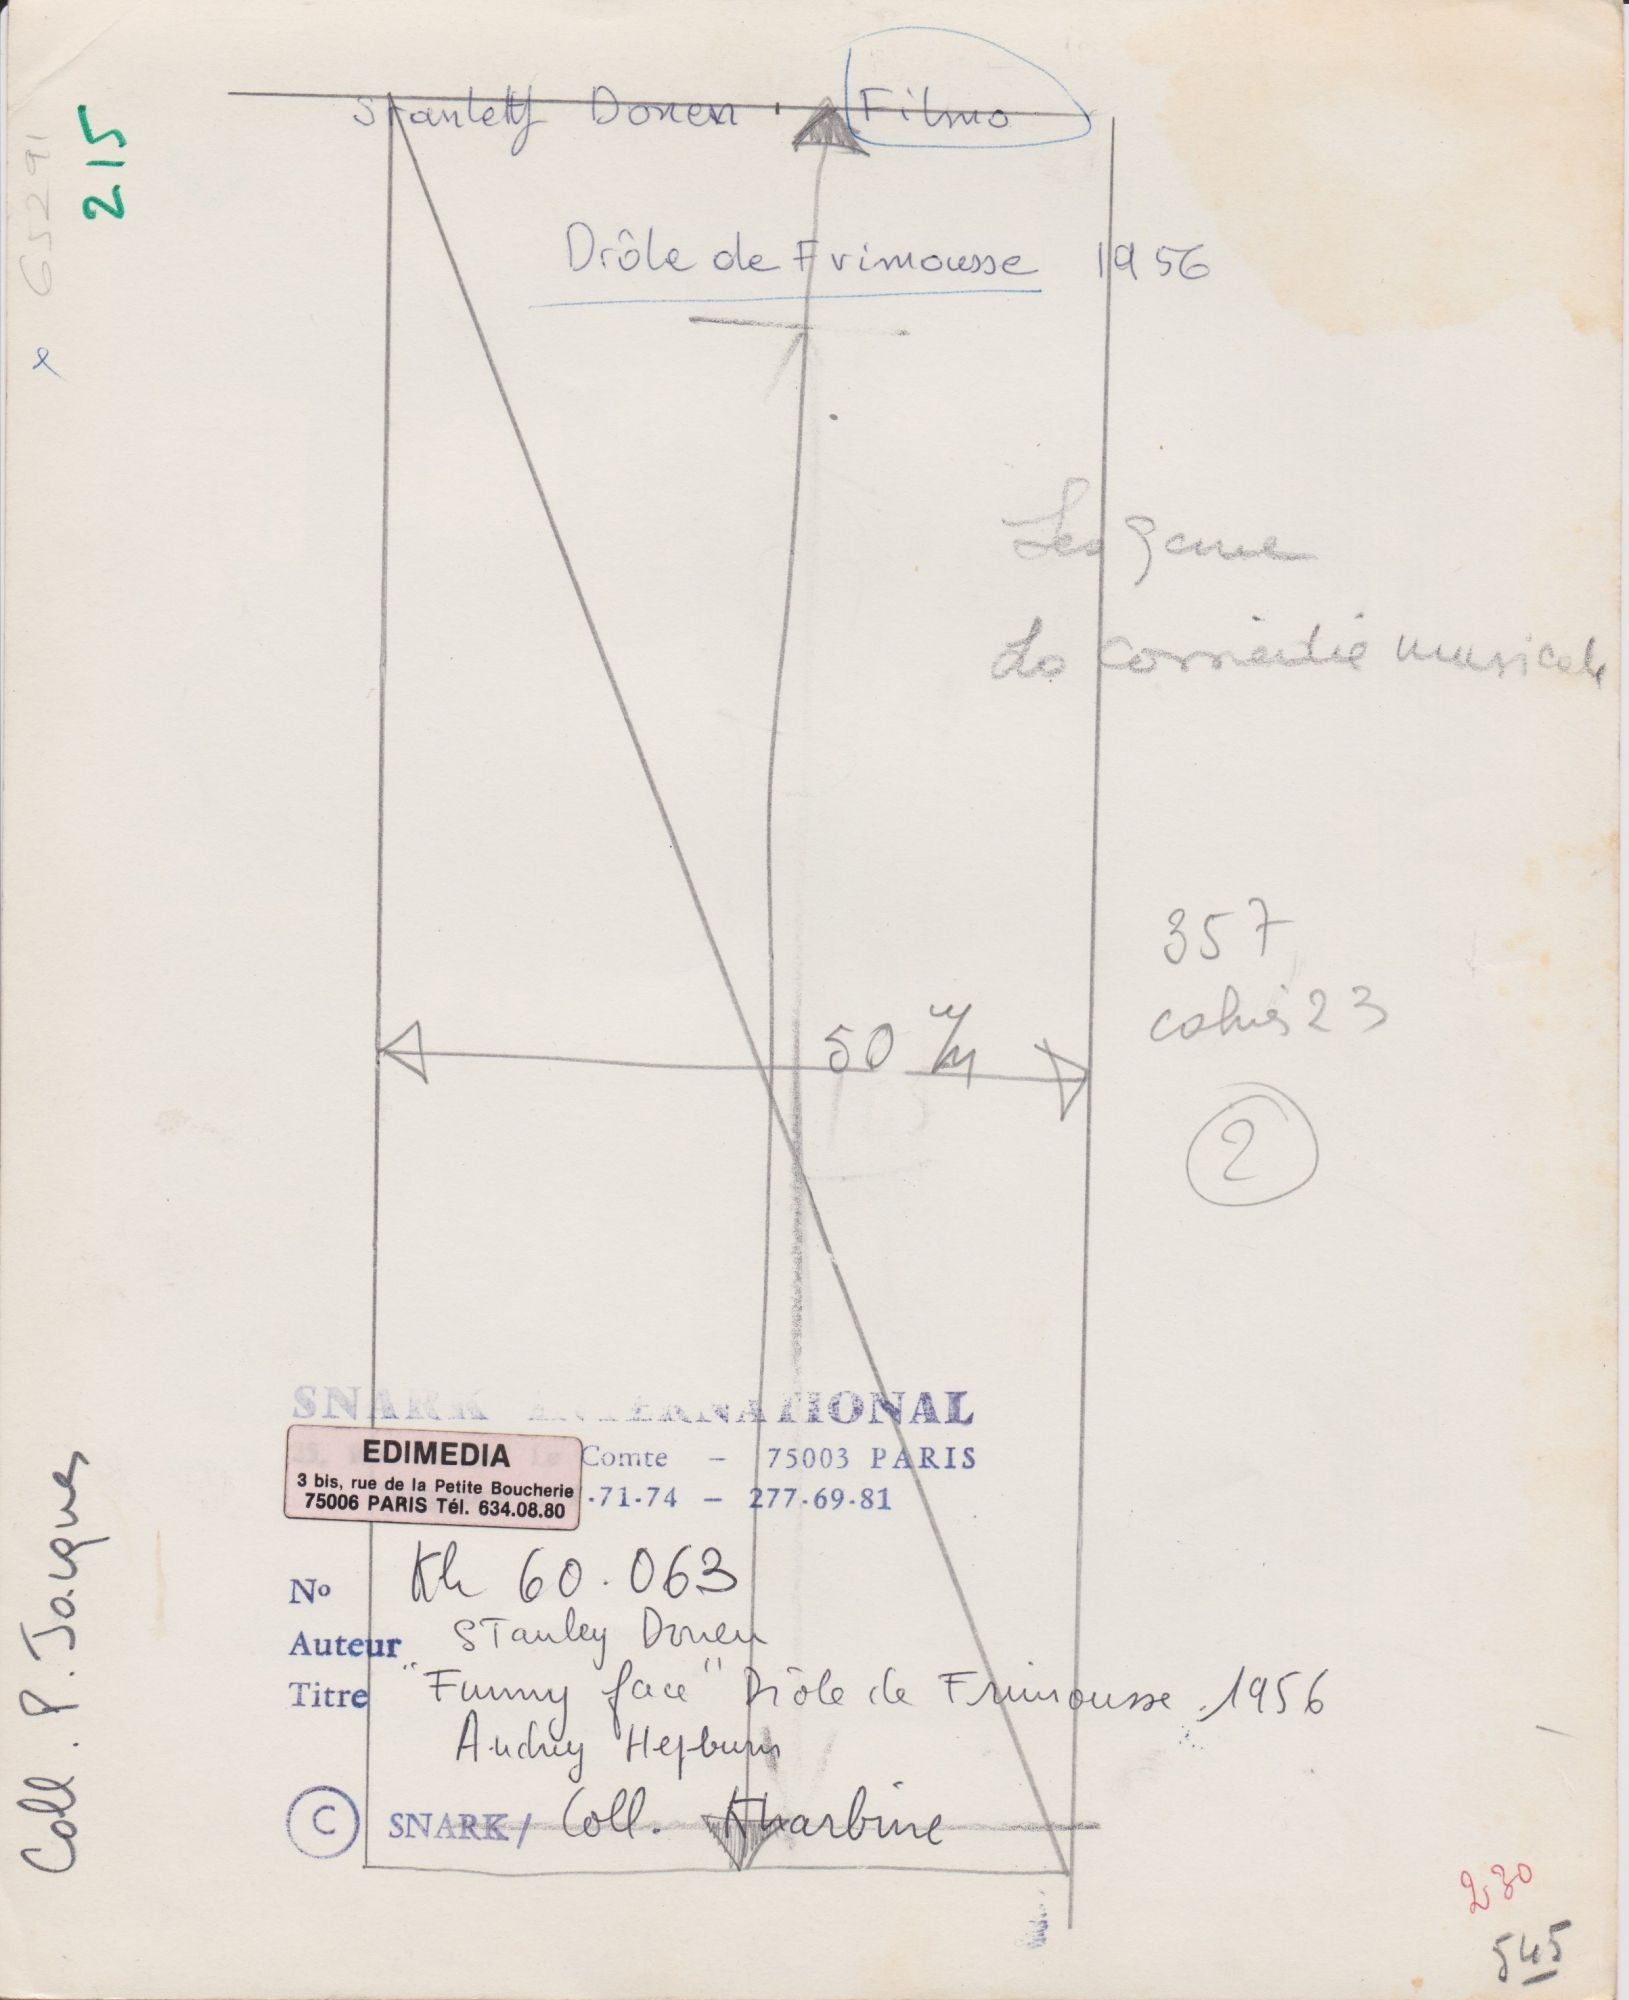 Stanley Donen . Filmo
Drôle de Frimousse 1956
215
65291
Les genre
La comédie musicale
357
cahier 23
50 m/m
2
SNARK INTERNATIONAL
Le Comte – 75003 PARIS
.71-74 – 277-69-81
EDIMEDIA
3 bis, rue de la Petite Boucherie
75006 PARIS Tél. 634.08.80
No Kh 60.063
Auteur Stanley Donen
Titre "Funny face" Drôle de Frimousse . 1956
Audrey Hepburn
© SNARK / Coll. Kharbine
Coll. P. Jacques
230
545